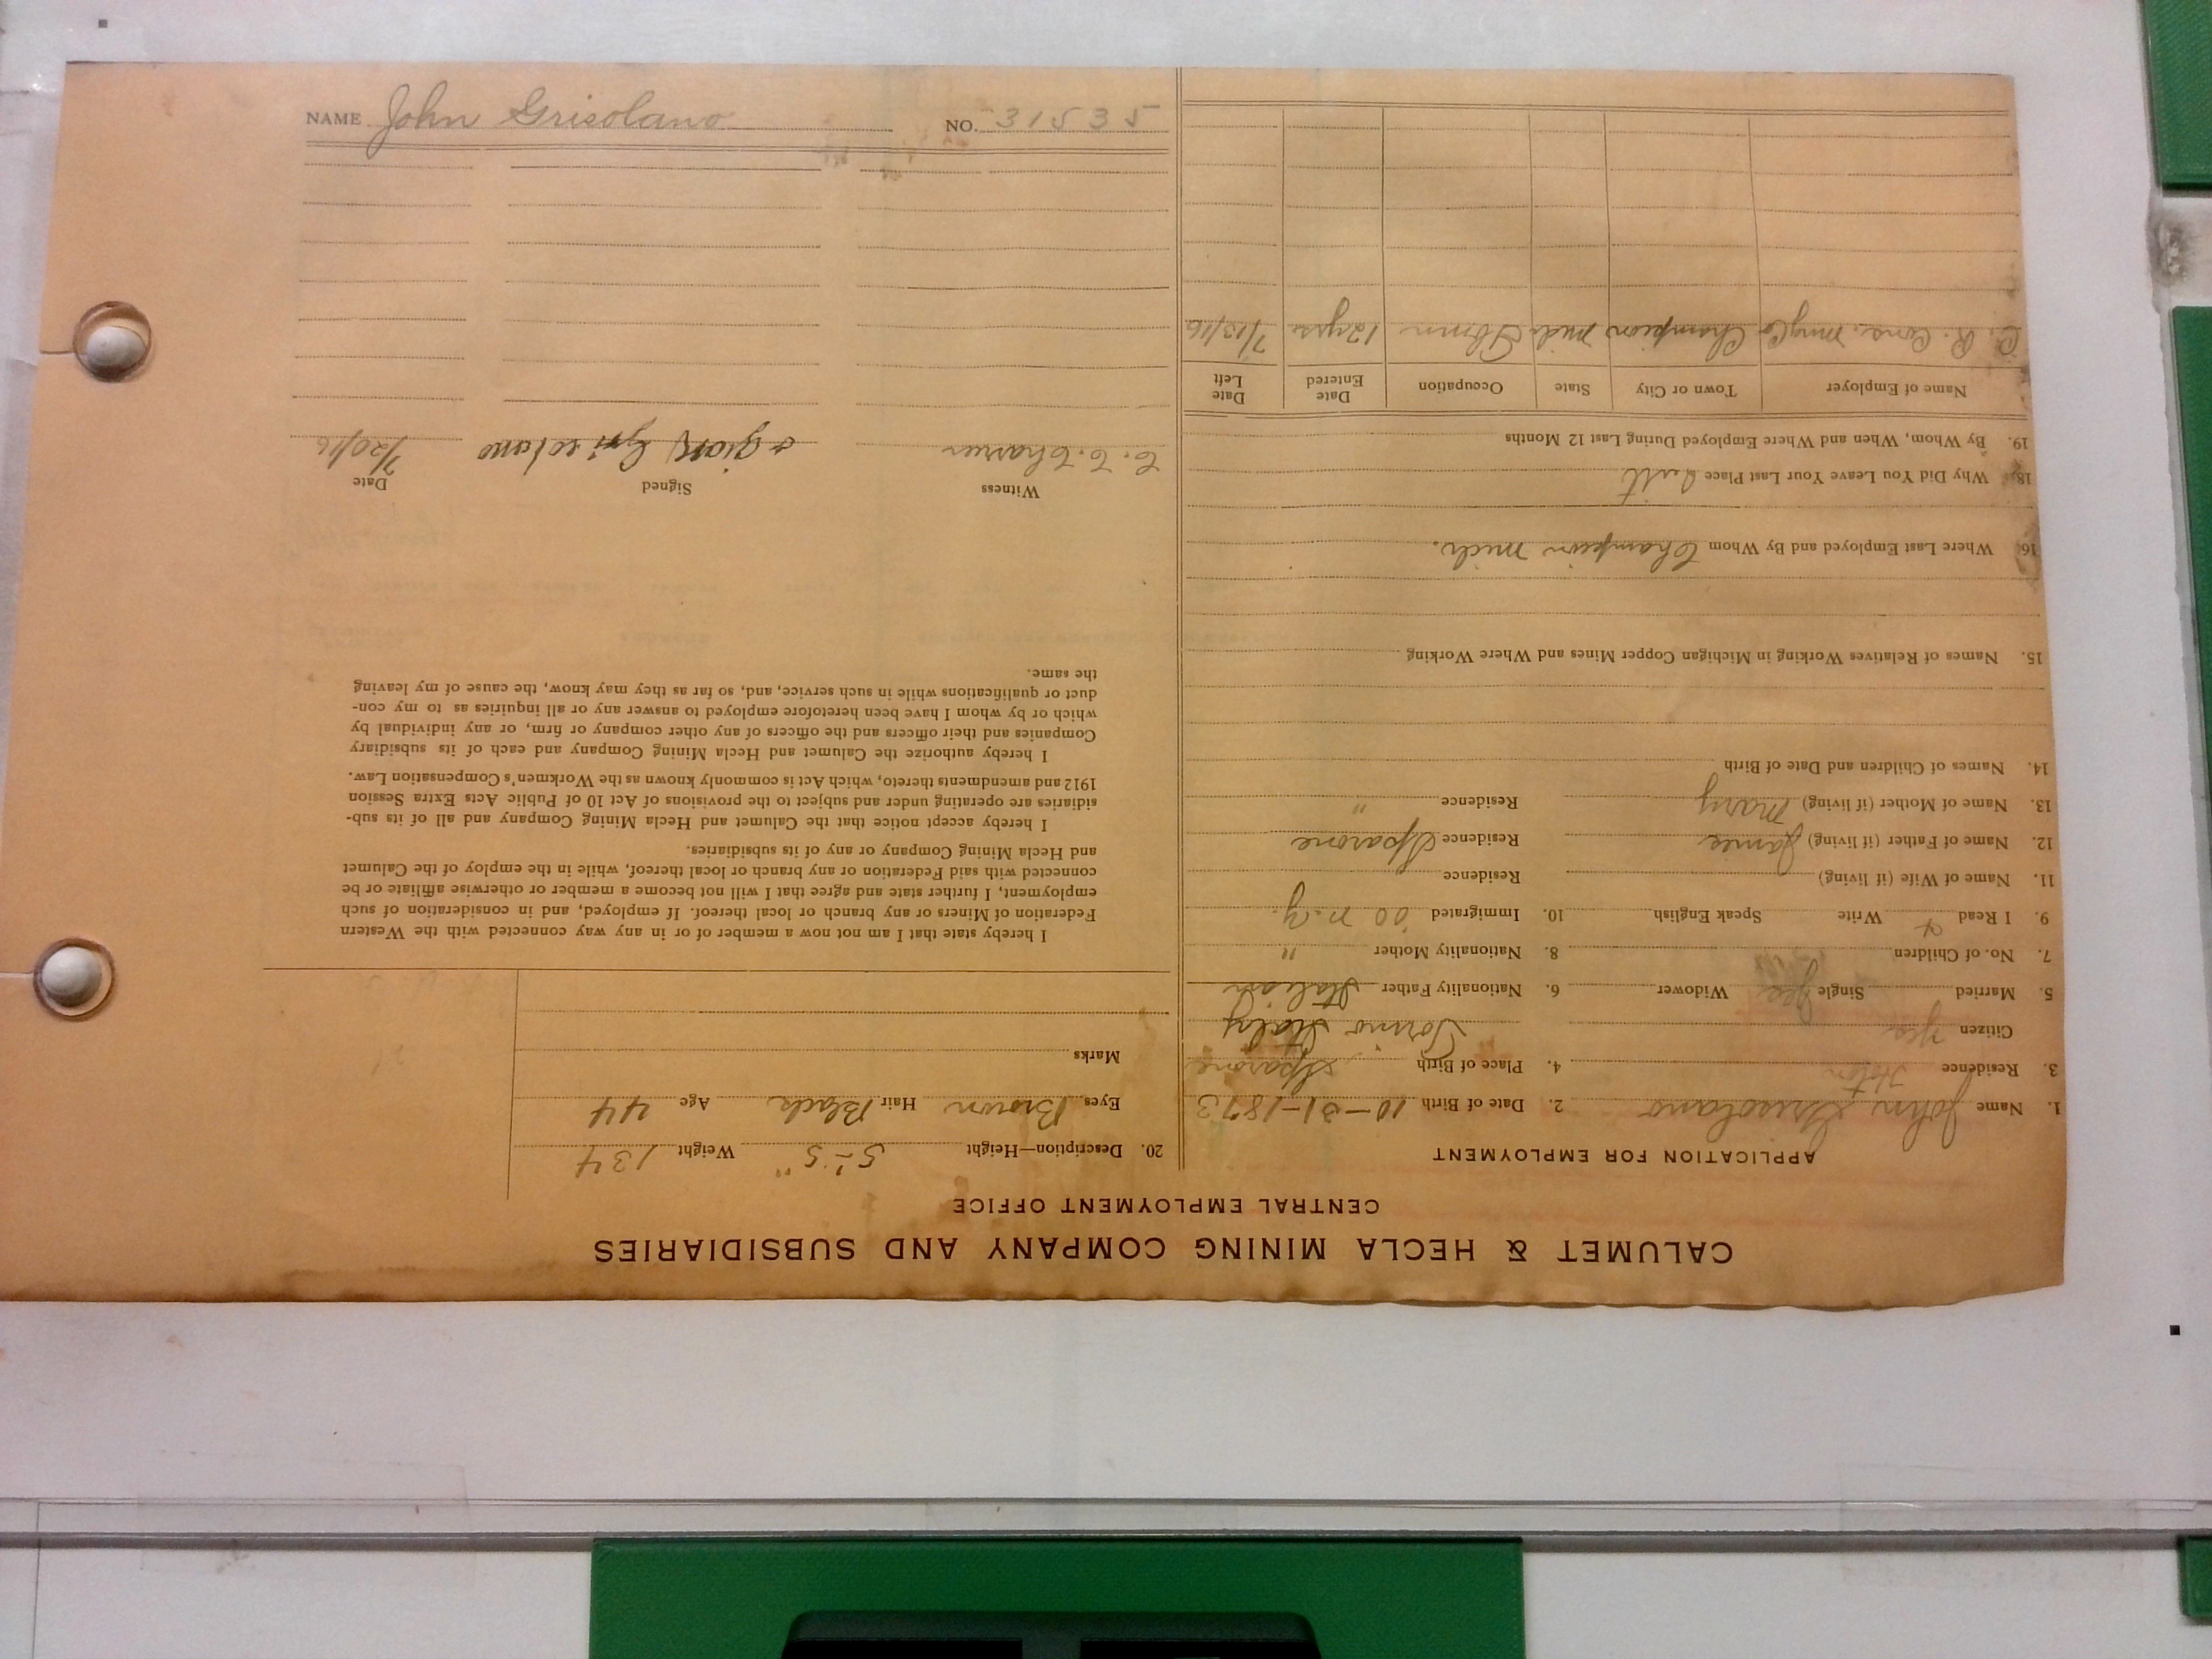 NAME John Grisolano NO. 31535
CALUMET & HECLA MINING COMPANY AND SUBSIDIARIES
CENTRAL EMPLOYMENT OFFICE
APPLICATION FOR EMPLOYMENT
1. Name John Grisolano 2. Date of Birth 10-31-1873
3. Residence 4. Place of Birth Sparone
Citizen Yes Torino Italy
5. Married Single Yes Widower 6. Nationality Father Italian
7. No. of Children 8. Nationality Mother "
9. I Read Write Speak English 10. Immigrated '00 N.Y.
11. Name of Wife (if living) Residence
12. Name of Father (if living) James Residence Sparone
13. Name of Mother (if living) Mary Residence "
14. Names of Children and Date of Birth
15. Names of Relatives Working in Michigan Copper Mines and Where Working
16. Where Last Employed and By Whom Champion Mich.
18. Why Did You Leave Your Last Place Quit
19. By Whom, When and Where Employed During Last 12 Months
Name of Employer Town or City State Occupation Date Entered Date Left
C. R. Cons. Mng Co Champion Mich 12 yrs 7/13/16
20. Description—Height 5'-5" Weight 134
Eyes Brown Hair Black Age 44
Marks
I hereby state that I am not now a member of or in any way connected with the Western
Federation of Miners or any branch or local thereof. If employed, and in consideration of such
employment, I further state and agree that I will not become a member or otherwise affiliate or be
connected with said Federation or any branch or local thereof, while in the employ of the Calumet
and Hecla Mining Company or any of its subsidiaries.
I hereby accept notice that the Calumet and Hecla Mining Company and all of its sub-
sidiaries are operating under and subject to the provisions of Act 10 of Public Acts Extra Session
1912 and amendments thereto, which Act is commonly known as the Workmen's Compensation Law.
I hereby authorize the Calumet and Hecla Mining Company and each of its subsidiary
Companies and their officers and the officers of any other company or firm, or any individual by
which or by whom I have been heretofore employed to answer any or all inquiries as to my con-
duct or qualifications while in such service, and, so far as they may know, the cause of my leaving
the same.
Witness Signed Date
Grisolano 7/20/16